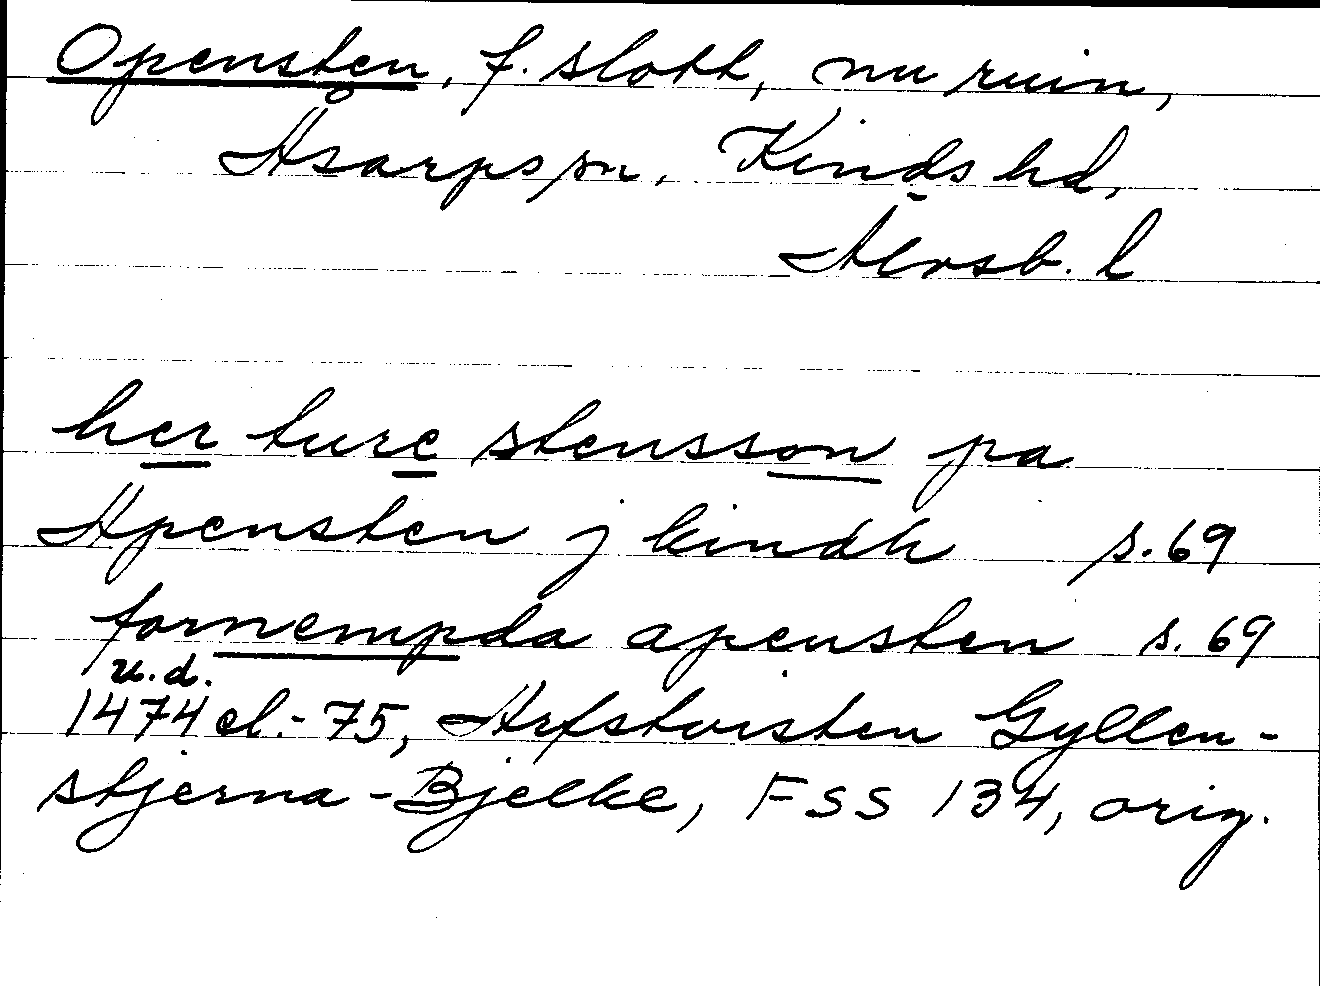 Opensten, f. slott, nu ruin,
Åsarps sn, Kinds hd,
Älvsb. l
her ture stensson pa
Apensten j kindh s. 69
fornempda apensten s. 69
u.d.
1474 el. -75, Arfstvisten Gyllen-
stjerna-Bjelke, FSS 134, orig.